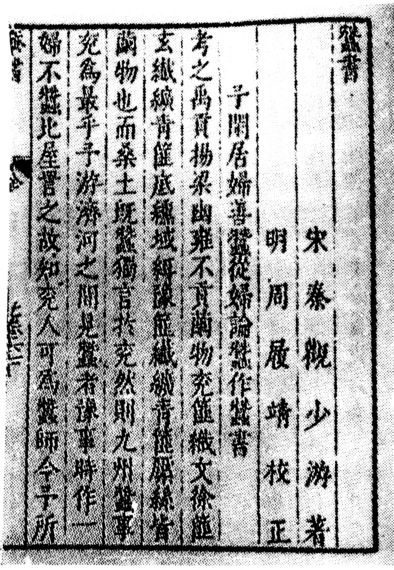 蠶書
宋秦觀少游著
明周履靖校正
子閑居婦善蠶從婦論蠶作蠶書
考之禹貢揚梁幽雍不貢繭物兗篚織文徐篚
玄纖縞篚纁篚纖纊青篚檿絲皆
繭物也而桑土既蠶獨言扵兗然則九州蠶事
兗為最乎予游濟河之間見蠶者豫事時作一
婦不蠶比屋詈之故知兗人可為蠶師今予所
蠶書